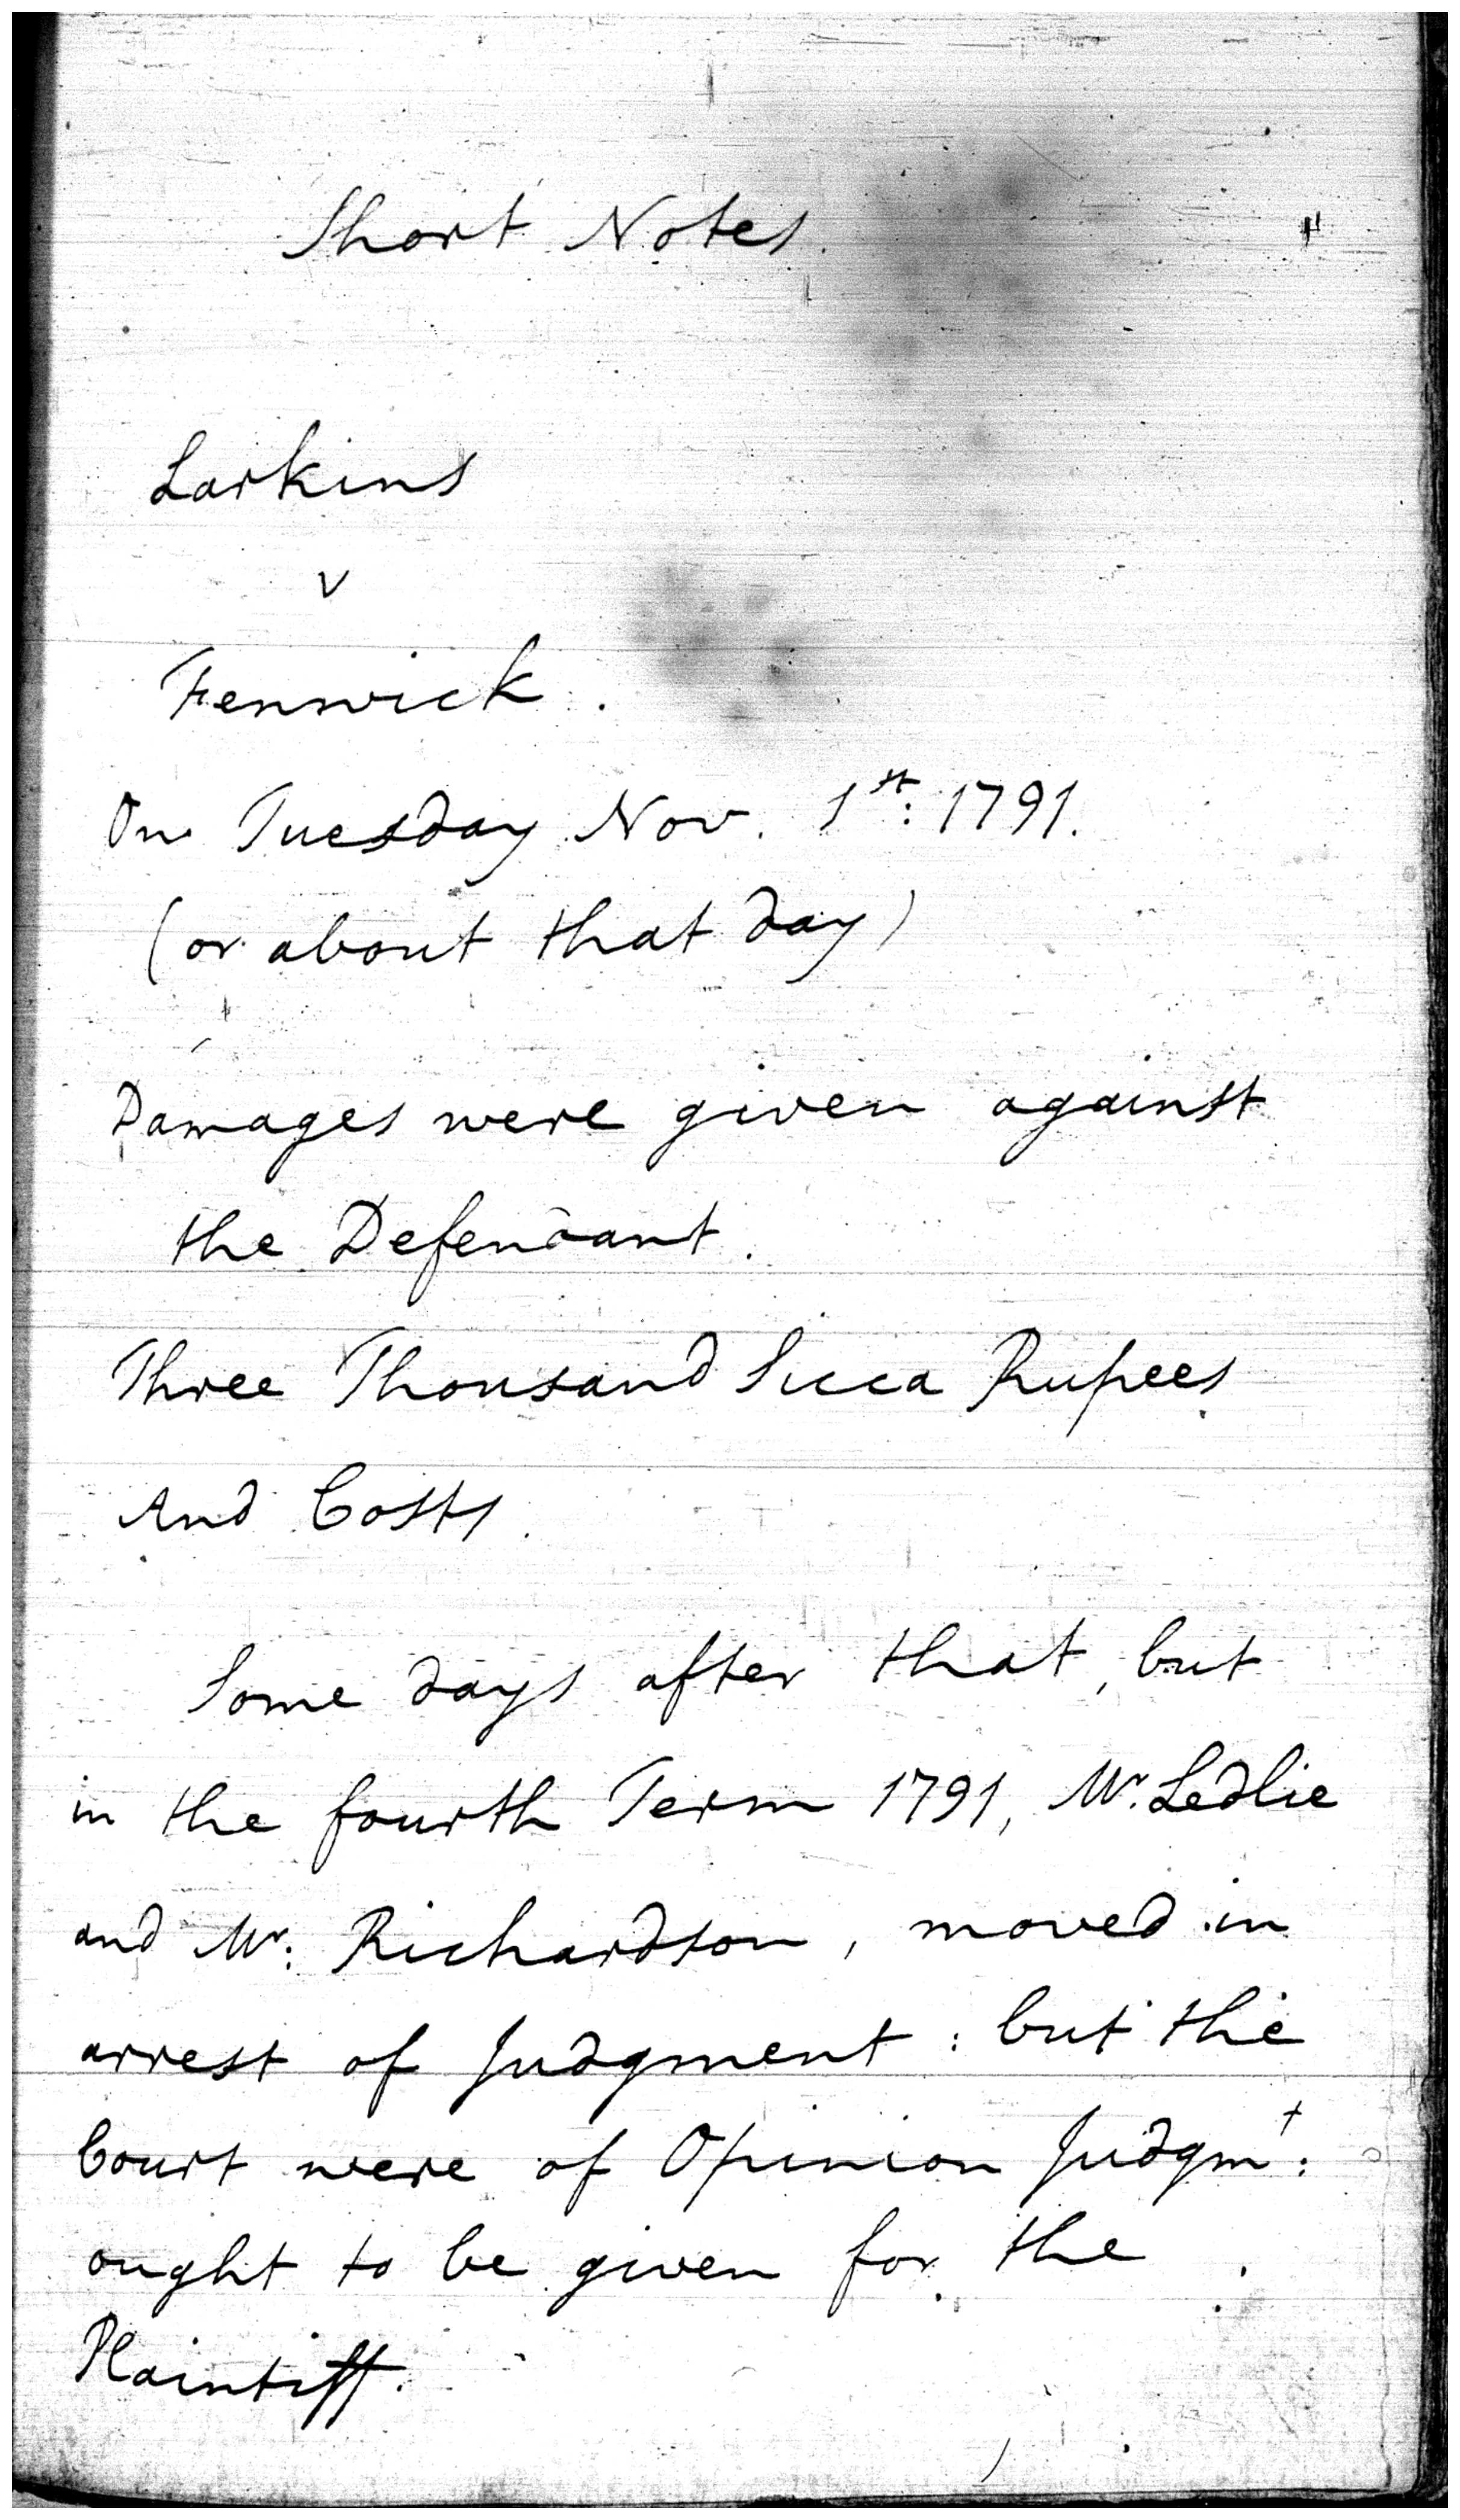 Short Notes.
Larkins
v
Fenwick.
On Tuesday Nov. 1st: 1791.
(or about that day)
Damages were given against
the Defendant.
Three Thousand Sicca Rupees
And Costs.
Some days after that, but
in the fourth Term 1791, Mr. Ledlie
and Mr: Richardson, moved in
arrest of Judgment: but the
Court were of Opinion Judgmt:
ought to be given for the
Plaintiff.